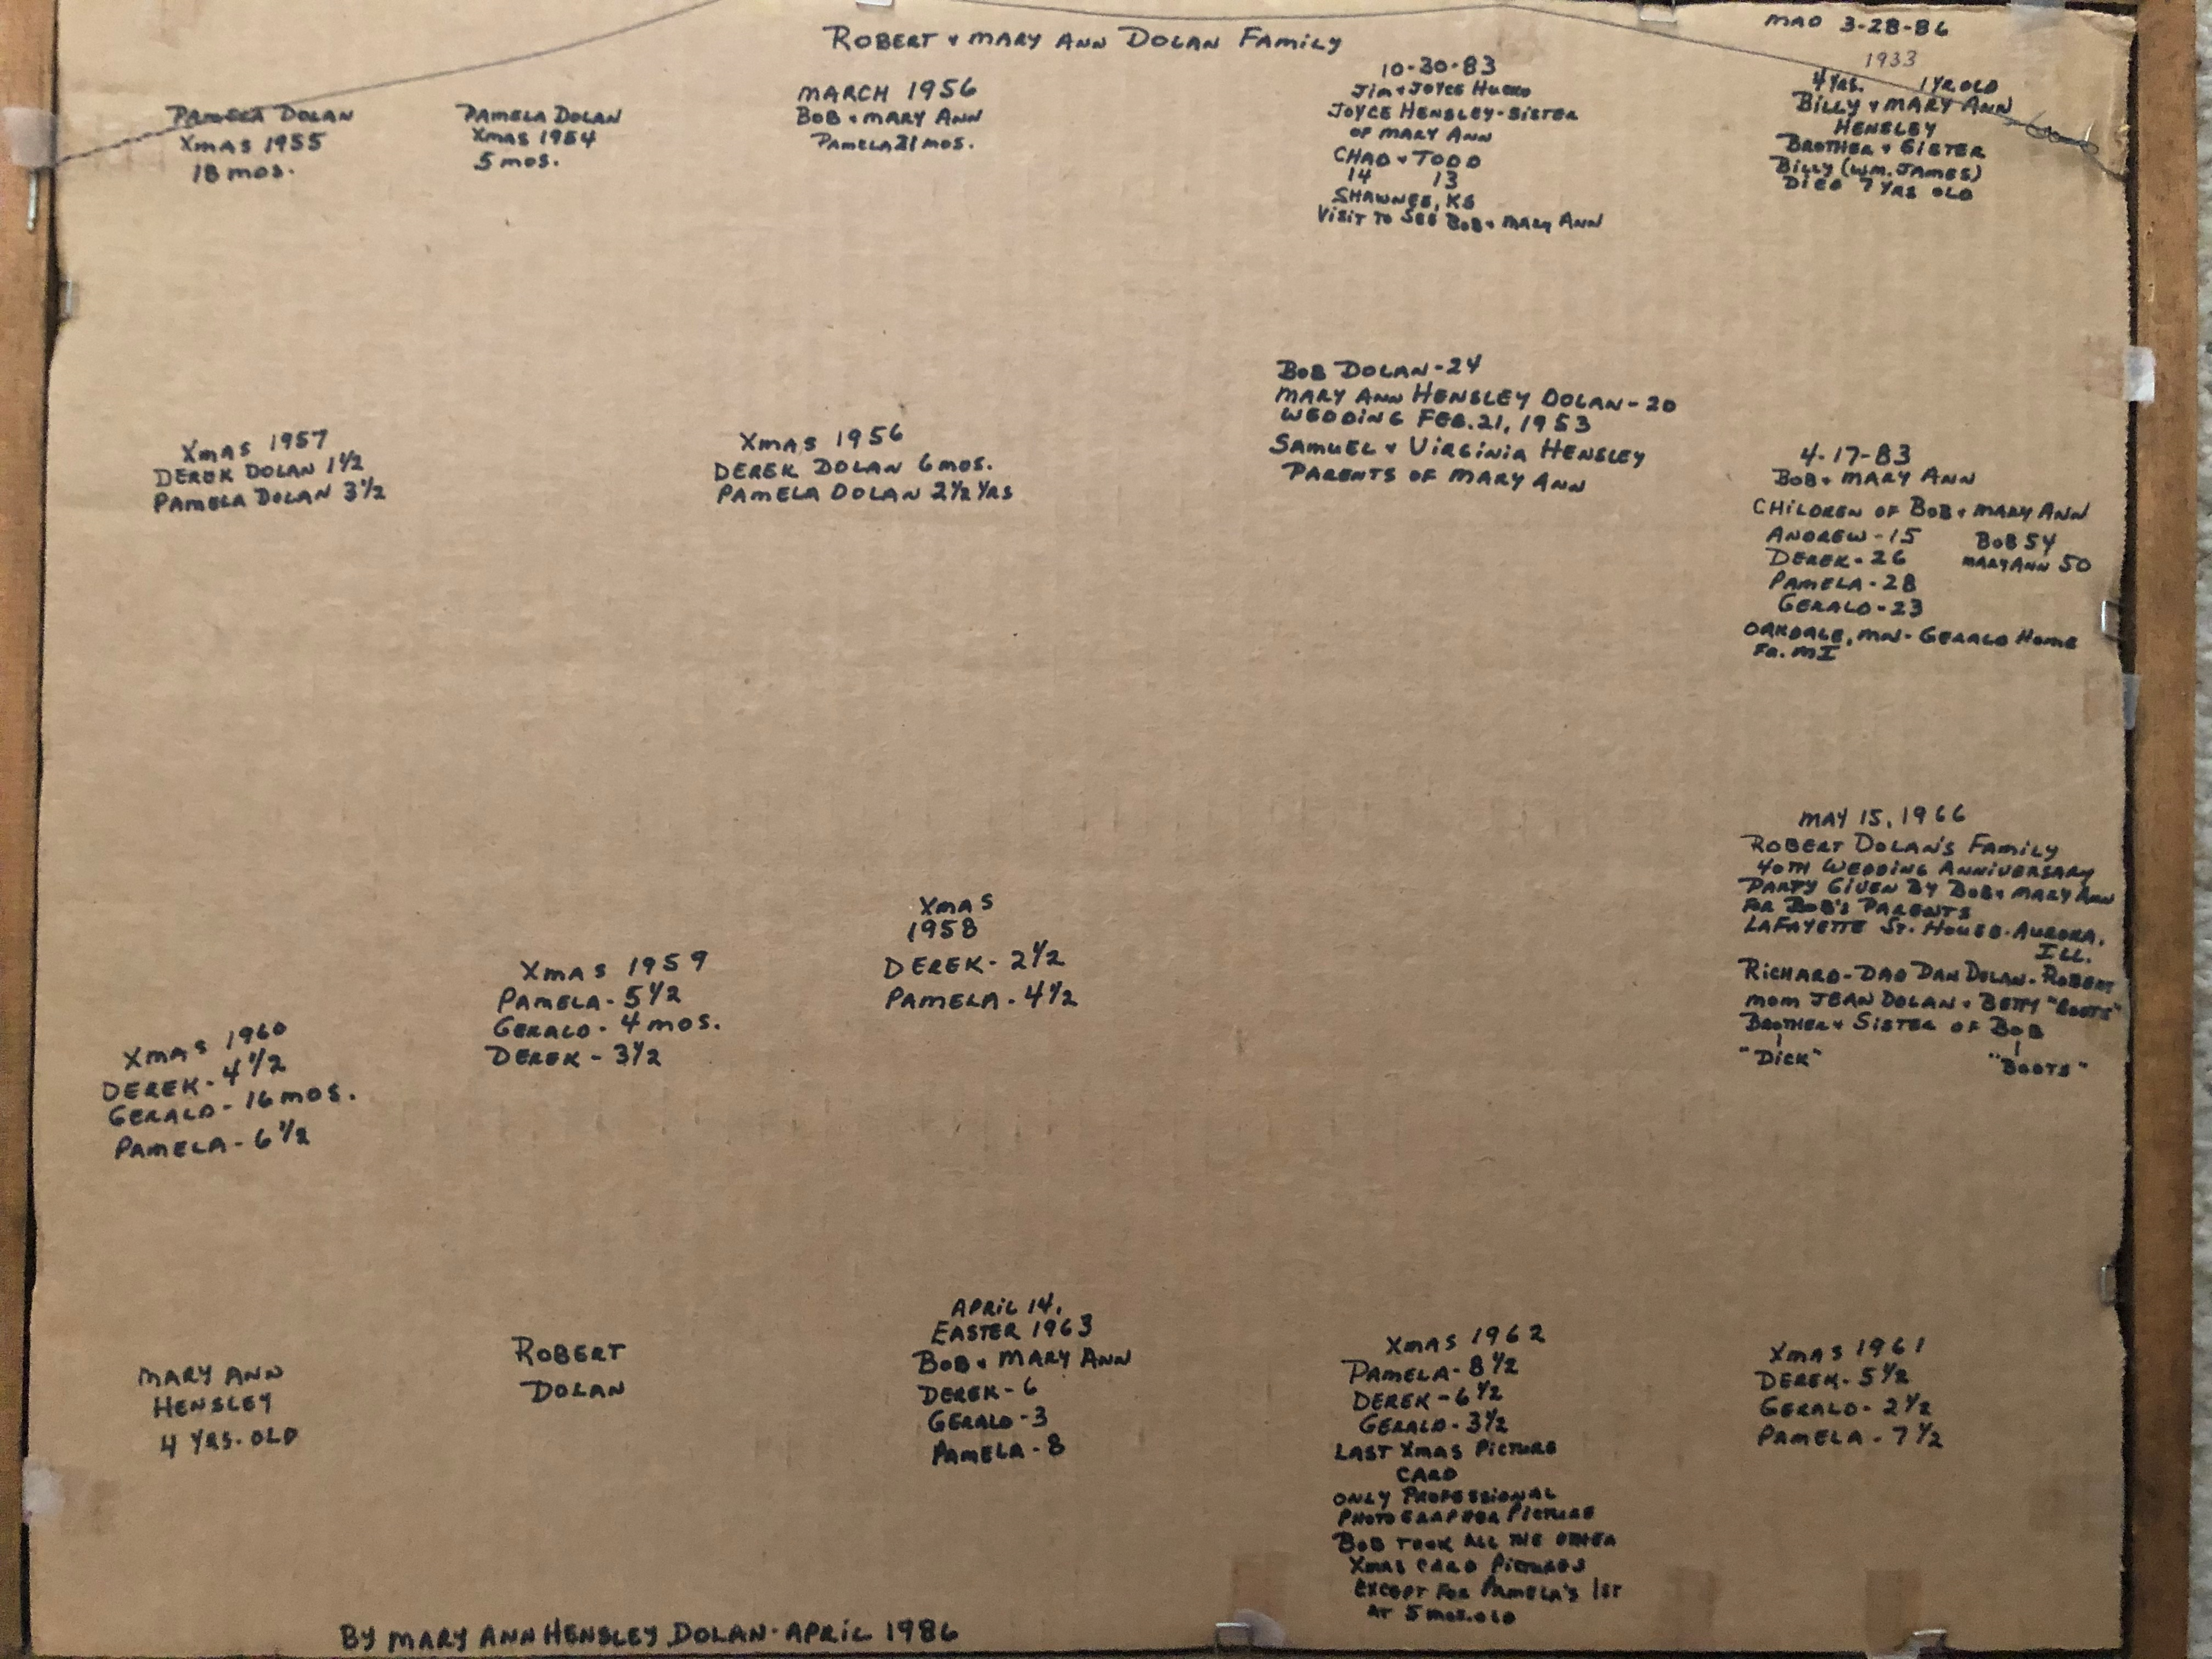 ROBERT & MARY ANN DOLAN FAMILY
MAD 3-28-86
PAMELA DOLAN
XMAS 1955
18 MOS.
PAMELA DOLAN
XMAS 1954
5 MOS.
MARCH 1956
BOB & MARY ANN
PAMELA 21 MOS.
10-30-83
JIM & JOYCE
JOYCE HENSLEY-SISTER
OF MARY ANN
CHAD & TODD
14 13
SHAWNEE, KS
VISIT TO SEE BOB & MARY ANN
1933
4 YRS. 1 YR OLD
BILLY & MARY ANN
HENSLEY
BROTHER & SISTER
BILLY (WM. JAMES)
DIED 7 YRS OLD
XMAS 1957
DEREK DOLAN 1½
PAMELA DOLAN 3½
XMAS 1956
DEREK DOLAN 6 MOS.
PAMELA DOLAN 2½ YRS
BOB DOLAN-24
MARY ANN HENSLEY DOLAN-20
WEDDING FEB. 21, 1953
SAMUEL & VIRGINIA HENSLEY
PARENTS OF MARY ANN
4-17-83
BOB & MARY ANN
CHILDREN OF BOB & MARY ANN
ANDREW-15 BOB 54
DEREK-26 MARY ANN 50
PAMELA-28
GERALD-23
OAKDALE, MN-GERALD HOME
FR. MI
MAY 15, 1966
ROBERT DOLAN'S FAMILY
40TH WEDDING ANNIVERSARY
PARTY GIVEN BY BOB & MARY ANN
FOR BOB'S PARENTS
LAFAYETTE ST. HOUSE-AURORA,
ILL.
RICHARD-DAD DAN DOLAN-ROBERT
MOM JEAN DOLAN & BETTY "BOOTS"
BROTHER & SISTER OF BOB
"DICK" "BOOTS"
XMAS 1960
DEREK-4½
GERALD-16 MOS.
PAMELA-6½
XMAS 1959
PAMELA-5½
GERALD-4 MOS.
DEREK-3½
XMAS
1958
DEREK-2½
PAMELA-4½
MARY ANN
HENSLEY
4 YRS. OLD
ROBERT
DOLAN
APRIL 14,
EASTER 1963
BOB & MARY ANN
DEREK-6
GERALD-3
PAMELA-8
XMAS 1962
PAMELA-8½
DEREK-6½
GERALD-3½
LAST XMAS PICTURE
CARD
ONLY PROFESSIONAL
PHOTOGRAPHER PICTURE
BOB TOOK ALL THE OTHER
XMAS CARD PICTURES
EXCEPT FOR PAMELA'S 1ST
AT 5 MOS. OLD
XMAS 1961
DEREK-5½
GERALD-2½
PAMELA-7½
BY MARY ANN HENSLEY DOLAN-APRIL 1986